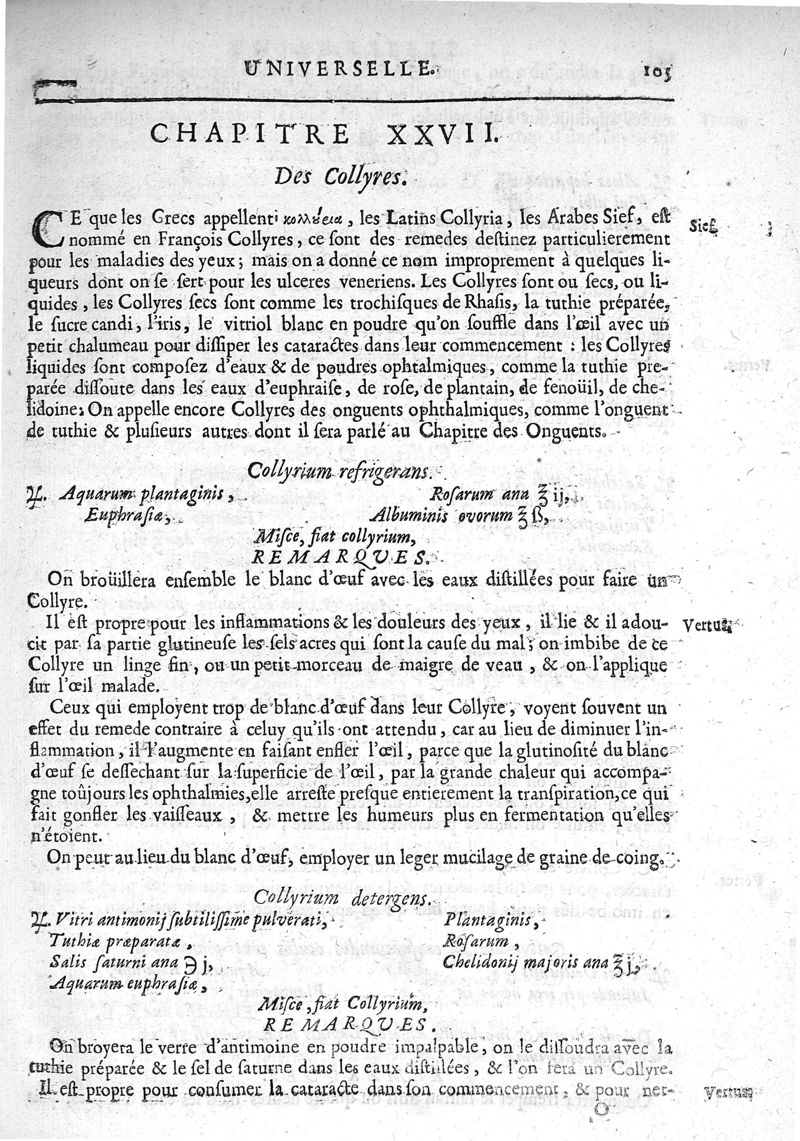 UNIVERSELLE. 105
CHAPITRE XXVII.
Des Collyres.
CE que les Grecs appellent κολλύεια, les Latins Collyria, les Arabes Sief, est
Sief.
nommé en François Collyres, ce sont des remedes destinez particulierement
pour les maladies des yeux; mais on a donné ce nom improprement à quelques li-
queurs dont on se sert pour les ulceres veneriens. Les Collyres sont ou secs, ou li-
quides, les Collyres secs sont comme les trochisques de Rhasis, la tuthie préparée,
le sucre candi, l'iris, le vitriol blanc en poudre qu'on souffle dans l'œil avec un
petit chalumeau pour dissiper les cataractes dans leur commencement : les Collyres
liquides sont composez d'eaux & de poudres ophtalmiques, comme la tuthie pre-
parée dissoute dans les eaux d'euphraise, de rose, de plantain, de fenoüil, de che-
lidoine: On appelle encore Collyres des onguents ophthalmiques, comme l'onguent
de tuthie & plusieurs autres dont il sera parlé au Chapitre des Onguents.
Collyrium refrigerans.
♃. Aquarum plantaginis, Rosarum ana ℥ ij,
Euphrasiæ, Albuminis ovorum ℥ ß,
Misce, fiat collyrium,
REMARQUES.
On broüillera ensemble le blanc d'œuf avec les eaux distillées pour faire un
Collyre.
Il est propre pour les inflammations & les douleurs des yeux, il lie & il adou-
Vertus.
cit par sa partie glutineuse les sels acres qui sont la cause du mal; on imbibe de ce
Collyre un linge fin, ou un petit morceau de maigre de veau, & on l'applique
sur l'œil malade.
Ceux qui employent trop de blanc d'œuf dans leur Collyre, voyent souvent un
effet du remede contraire à celuy qu'ils ont attendu, car au lieu de diminuer l'in-
flammation, il l'augmente en faisant enfler l'œil, parce que la glutinosité du blanc
d'œuf se dessechant sur la superficie de l'œil, par la grande chaleur qui accompa-
gne toûjours les ophthalmies, elle arreste presque entierement la transpiration, ce qui
fait gonfler les vaisseaux, & mettre les humeurs plus en fermentation qu'elles
n'étoient.
On peut au lieu du blanc d'œuf, employer un leger mucilage de graine de coing.
Collyrium detergens.
♃. Vitri antimonij subtilissime pulverati, Plantaginis,
Tuthiæ præparatæ, Rosarum,
Salis saturni ana ℈ j, Chelidonij majoris ana ℥ j,
Aquarum euphrasiæ,
Misce, fiat Collyrium,
REMARQUES.
On broyera le verre d'antimoine en poudre impalpable, on le dissoudra avec la
tuthie préparée & le sel de saturne dans les eaux distillées, & l'on fera un Collyre.
Il est propre pour consumer la cataracte dans son commencement, & pour net-
Vertus
O